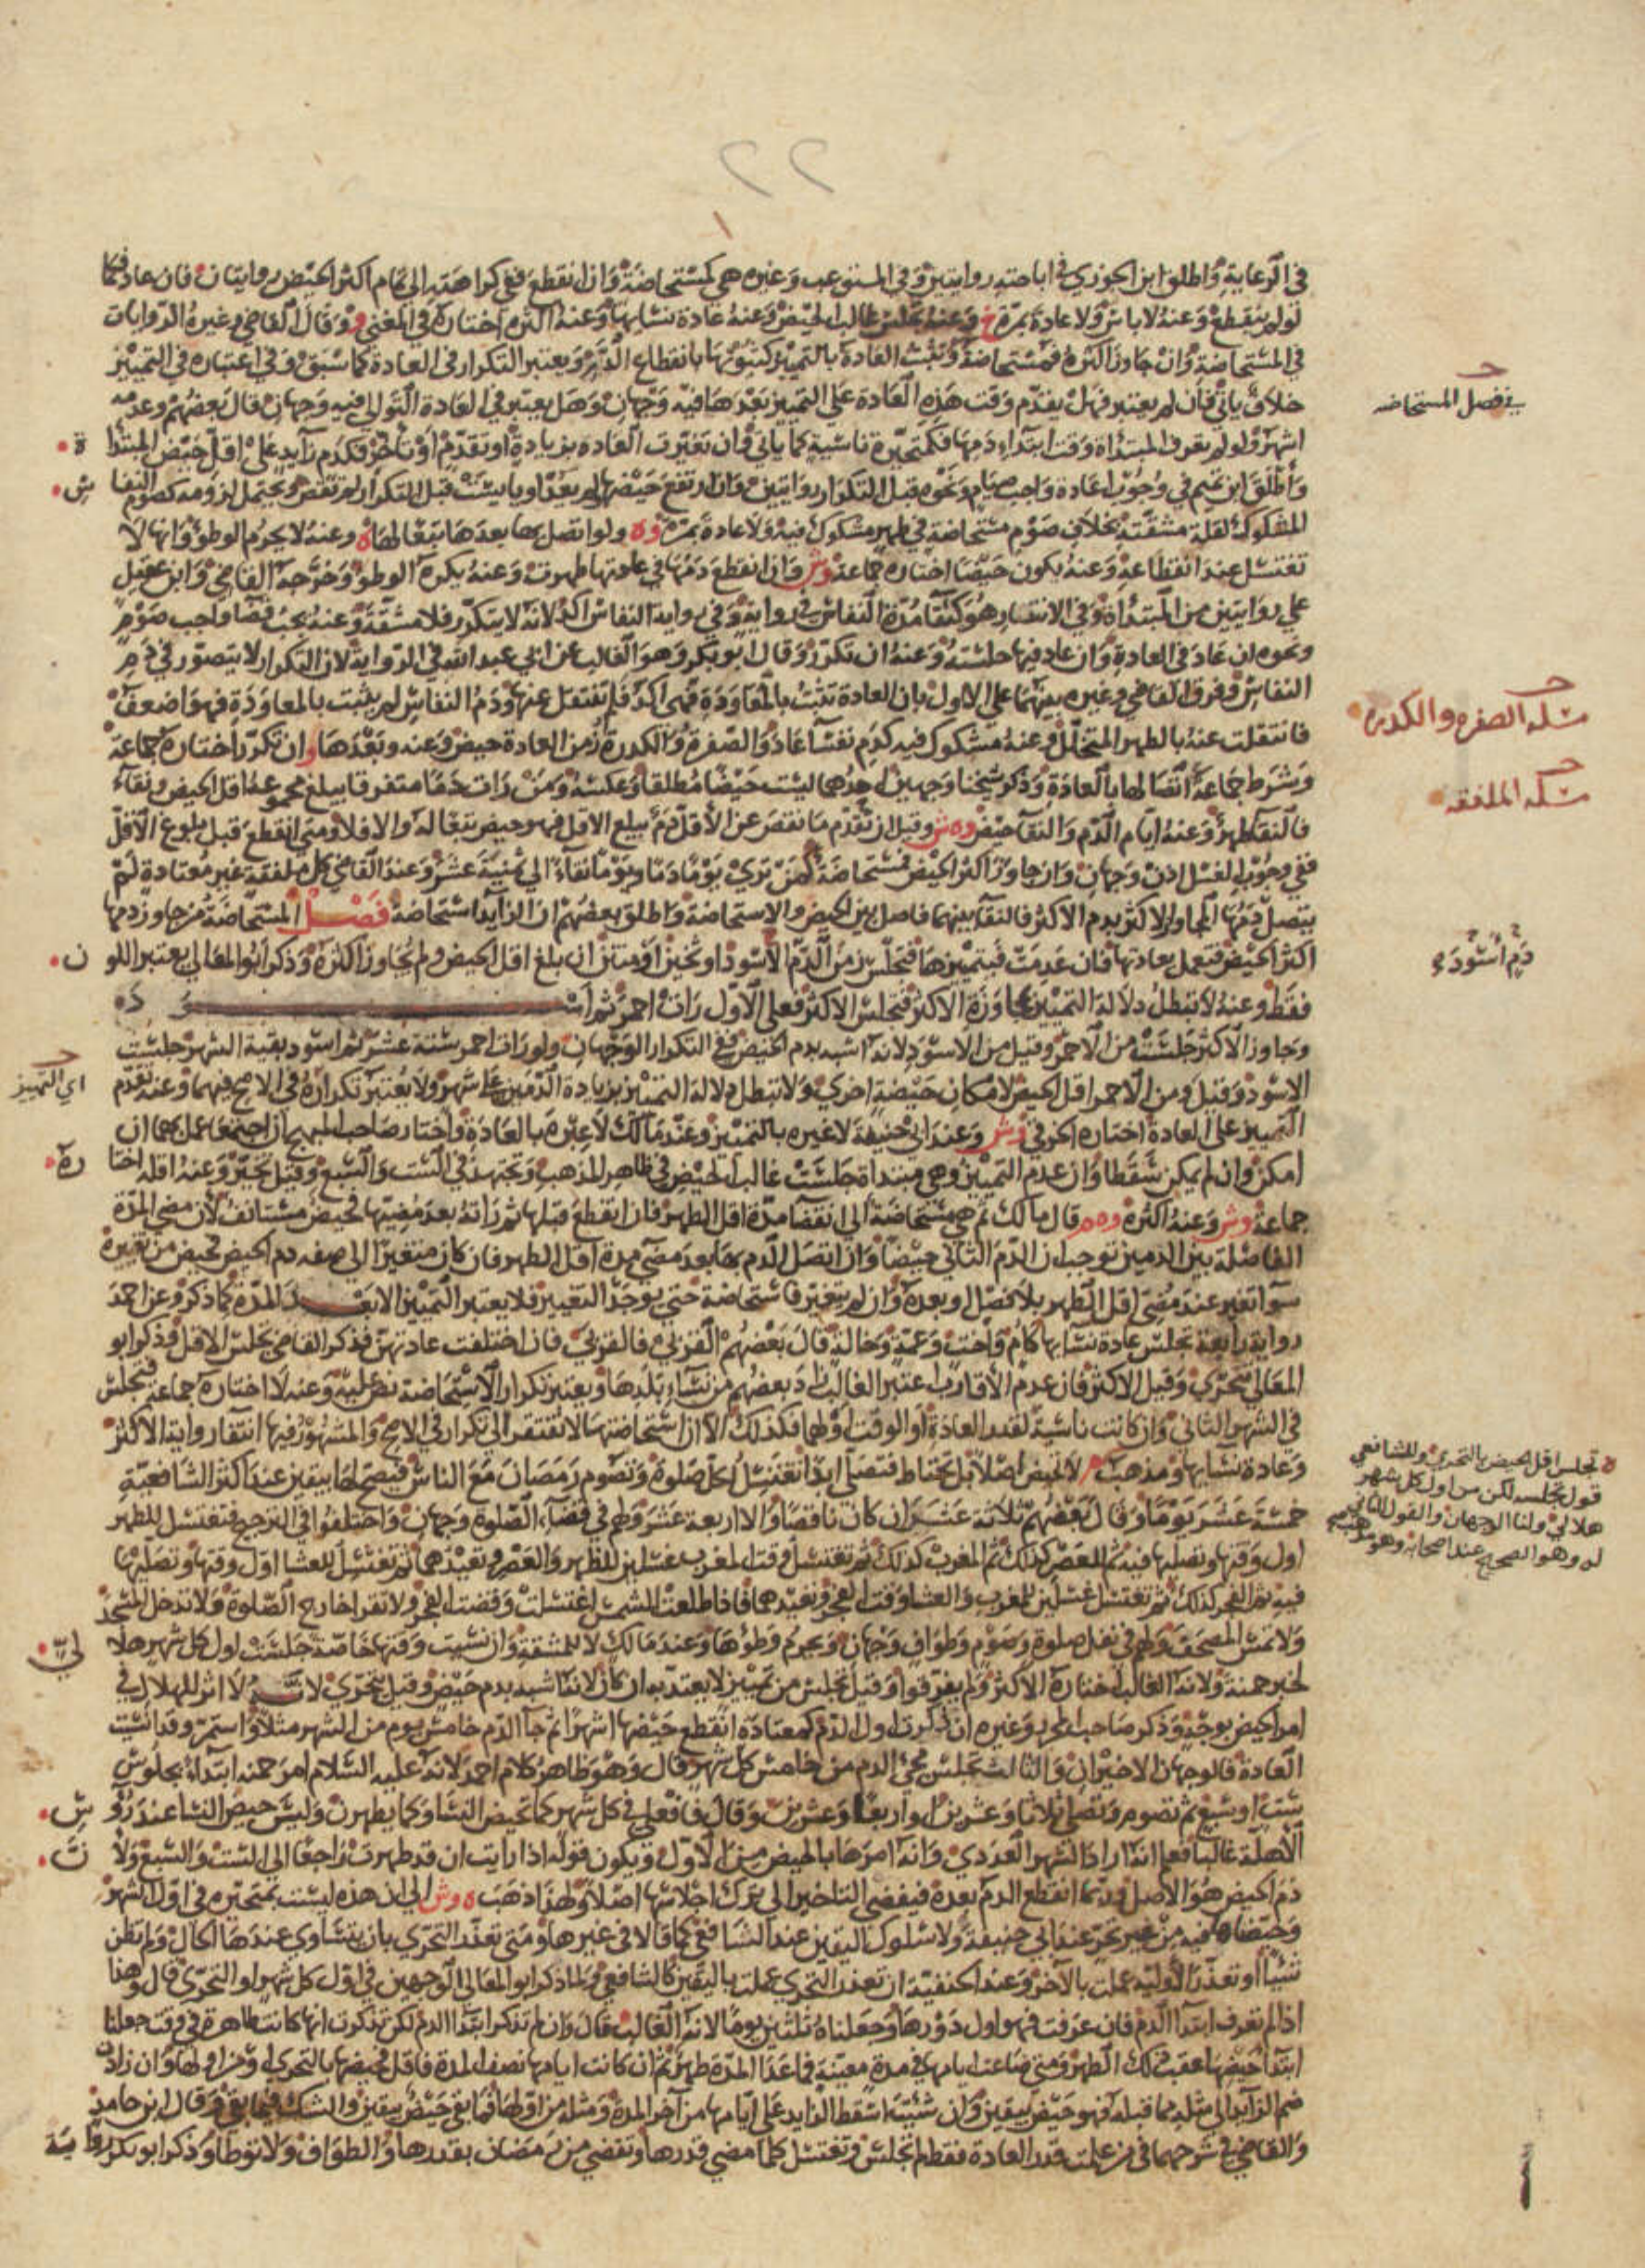 ٢٢
في الرعاية وأطلق ابن الجوزي في إباحته روايتين وفي المستوعب وغيره هي كمستحاضة وإن انقطع ففي كراهته إلى تمام أكثر الحيض روايتان فإن عاد فكما
لو لم ينقطع وعنه لا بأس ولا عادة بمرة وعنه تجلس غالب الحيض وعنه عادة نسائها وعنه أكثره اختاره في المغني وقال القاضي وغيره الروايات
في المستحاضة وإن جاوز أكثره فمستحاضة وتثبت العادة بالتمييز كثبوتها بانقطاع الدم ويعتبر التكرار في العادة كما سبق وفي اعتباره في التمييز
خلاف يأتي فإن لم يعتبر فهل يقدم وقت هذه العادة على التمييز بعدها فيه وجهان وهل يعتبر في العادة التوالي فيه وجهان قال بعضهم وعدمه
في فصل المستحاضه
أشهر ولو لم تعرف المبتدأة وقت ابتداء دمها فكمتحيرة ناسية كما يأتي وإن تغيرت العادة بزيادة أو تقدم أو تأخر فكدم زايد على أقل حيض المبتدأة
وأطلق ابن تميم في وجوب إعادة واجب صيام ونحوه قبل التكرار روايتين وإن ارتفع حيضها ولم يعد أو يايست قبل التكرار لم تقض ويحتمل لزومه كصوم النفاس
المشكوك لقلة مشقته بخلاف صوم مستحاضة في طهر مشكوك فيه ولا عادة بمرة وه ولو اتصل بها بعدها تبعا لهما ه وعنه لا يحرم الوطؤ وأنها لا
تغتسل عند انقطاعه وعنه يكون حيضا اختاره جماعة وش وإن انقطع دمها في عادتها طهرت وعنه يكره الوطؤ وخرجه القاضي وابن عقيل
على روايتين من المبتدأة وفي الانتصار هو كنقا مدة النفاس في رواية وفي رواية النفاس آكد لأنه لا يتكرر فلا مشقة وعنه يجب قضا واجب صوم
ونحوه إن عاد في العادة وإن عاد فيها جلسته وعنه إن تكرر وقال أبو بكر وهو الغالب عن أبي عبد الله في الرواية لأن التكرار لا يتصور في دم
النفاس وفرق القاضي وغيره بينهما على الأول بأن العادة تثبت بالمعاودة فهي آكد فلم تنتقل عنها ودم النفاس لم يثبت بالمعاودة فهو أضعف
مسلة الصفره والكدره
فانتقلت عنه بالطهر المتخلل وعنه مشكوك فيه كدم نفسا عاد والصفرة والكدرة زمن العادة حيض وعنه وبعدها وان تكرر اختاره جماعة
وشرط جماعة اتصالها بالعادة وذكر شيخنا وجهين أحدهما ليست حيضا مطلقا وعكسه ومن رأت دما متفرقا يبلغ مجموعه أقل الحيض ونقاء
مسلة الملفقه
فالنقا طهر وعنه أيام الدم والنقا حيض وه ش وقيل إن تقدم ما نقص عن الأقل دم يبلغ الأقل فهو حيض تبعا له وإلا فلا ومتى انقطع قبل بلوغ الأقل
ففي وجوب الغسل إذن وجهان وإن جاوز أكثر الحيض فمستحاضة كمن ترى يوما دما ويوما نقاء إلى ثمنية عشر وعند القاضي كل ملفقة غير معتادة لم
يتصل دمها المجاوز الأكثر بدم الأكثر فالنقا بينهما فاصل بين الحيض والاستحاضة وأطلق بعضهم أن الزايد استحاضة فصل المستحاضة من جاوز دمها
أكثر الحيض فتعمل بعادتها فإن عدمت فبتمييزها فتجلس زمن الدم الأسود أو ثخين أو منتن إن بلغ أقل الحيض ولم يجاوز أكثره وذكر أبو المعالي يعتبر اللون
دم أسود
فقط وعنه لا تبطل دلالة التمييز بمجاوزة الأكثر فتجلس الأكثر فعلى الأول رأت أحمر ثم أسود
وجاوز الأكثر جلست من الأحمر وقيل من الأسود لأنه أشبه بدم الحيض ففي التكرار الوجهان ولو رأت أحمر ستة عشر ثم أسود بقية الشهر جلست
الأسود وقيل ومن الأحمر أقل الحيض لإمكان حيضة أخرى ولا تبطل دلالة التمييز بزيادة الدمين على شهر ولا يعتبر تكراره في الأصح فيهما وعنه تقدم
اي التمييز
التمييز على العادة اختاره الخرقي وش وعند أبي حنيفة لا عبرة بالتمييز وعند مالك لا عبرة بالعادة واختار صاحب المبهج إن اجتمعا عمل بهما إن
أمكن وإن لم يمكن سقطا وإن عدم التمييز وهي مبتدأة جلست غالب الحيض في ظاهر المذهب وتجتهد في الست والسبع وقيل تخير وعنه أقله اختاره
جماعة وش وعنه أكثره وه م قال مالك ثم هي مستحاضة إلى انقضا مدة أقل الطهر فإن انقطع قبلها ثم رأته بعد مضيها فحيض مستانف لأن مضي المدة
الفاصلة بين الدمين توجب أن الدم الثاني حيضا وإن اتصل الدم بها بعد مضي مدة أقل الطهر فإن كان متغيرا إلى صفة دم الحيض فحيض من تغيره
سوا تغير عند مضي أقل الطهر بلا فصل أو بعده وإن لم يتغير فاستحاضة حتى يوجد التغيير فلا يعتبر التمييز إلا بعد المدة كما ذكر وعن أحمد
رواية رابعة تجلس عادة نسائها كأم وأخت وعمة وخالة قال بعضهم القربى فالقربى فإن اختلفت عادتهن فذكر القاضي تجلس الأقل وذكر أبو
المعالي تتحرى وقيل الأكثر فإن عدم الأقارب اعتبر الغالب زاد بعضهم من نساء بلدها ويعتبر تكرار الاستحاضة نص عليه وعنه لا اختاره جماعة فتجلس
في الشهر الثاني وإن كانت ناسية لعدد العادة أو الوقت أو لهما فكذلك إلا أن استحاضتها لا تفتقر إلى تكرار في الأصح والمشهور فيها انتفا رواية الأكثر
وعادة نسائها ومذهب م لا تحيض أصلا بل تحتاط فتصلي أبدا تغتسل لكل صلوة وتصوم رمضان مع الناس فيصح لها بيقين عند أكثر الشافعية
ه تجلس أقل الحيض بالتحري وللشافعي
قول تجلسه لكن من أول كل شهر
هلالي ولنا الوجهان والقول الثاني
له وهو الصحيح عند أصحابه وهو مذهب م
خمسة عشر يوما وقال بعضهم ثلاثة عشر إن كان ناقصا وإلا أربعة عشر ولهم في قضاء الصلوة وجهان واختلفوا في الترجيح فتغتسل للظهر
أول وقتها وتصليها فيه ثم للعصر كذلك ثم المغرب كذلك ثم تغتسل في وقت المغرب غسلين للظهر والعصر وتعيدهما ثم تغتسل للعشا أول وقتها وتصليها
فيه ثم الفجر كذلك ثم تغتسل غسلين للمغرب والعشا وقت الفجر وتعيدهما فإذا طلعت الشمس اغتسلت وقضت الفجر ولا تقرا خارج الصلوة ولا تدخل المسجد
ولا تمس المصحف ولهم في نفل صلوة وصوم وطواف وجهان ويحرم وطؤها وعند مالك لا للمشقة وإن نسيت وقتها خاصة جلست أول كل شهر هلالي
لخبر حمنة ولأنه الغالب اختاره الأكثر ولم يفرقوا وقيل تجلس من تمييز لا يعتد به إن كان لأنه أشبه بدم حيض وقيل تتحرى لأنه لا أثر للهلال في
أمر الحيض بوجه وذكر صاحب المحرر وغيره إن ذكرت أول الدم كمعتادة انقطع حيضها أشهرا ثم جا الدم خامس يوم من الشهر مثلا واستمر وقد انسيت
العادة فالوجهان الأخيران والثالث تجلس مجي الدم من خامس كل شهر قال وهو ظاهر كلام أحمد لأنه عليه السلام أمر حمنة ابتداء بجلوس
ست أو سبع ثم تصوم وتصلي ثلاثا وعشرين أو أربعا وعشرين وقال فافعلي في كل شهر كما تحيض النسا وكما يطهرن وليس حيض النسا عند رؤوس
الأهلة غالبا فعلم أنه أراد الشهر العددي وأنه أمرها بالحيض من الأول ويكون قوله إذا رأيت أن قد طهرت راجعا إلى الست والسبع ولأن
دم الحيض هو الأصل وربما انقطع الدم بعده فيفضي التأخير إلى ترك إجلاسها أصلا ولهذا ذهب ه وش إلى أن هذه ليست بمتحيرة في أول الشهر
وحيضاها فيه من غير تحر عند أبي حنيفة ولا سلوك اليقين عند الشافعي كما قالا في غيرها ومتى تعذر التحري بأن يتساوى عندها الحال ولم تظن
شيئا أو تعذر الأولية عملت بالآخر وعند الحنفية إن تعذر التحري عملت باليقين كالشافعي ولما ذكر أبو المعالي الوجهين في أول كل شهر أو التحري قال وهذا
إذا لم تعرف ابتدا الدم فإن عرفت فهو أول دورها وجعلناه ثلثين يوما لأنه الغالب قال وإن لم تذكر ابتدا الدم لكن تذكرت أنها كانت طاهرة في وقت جعلنا
ابتدا حيضها عقب ذلك الطهر ومتى ضاعت أيامها في مدة معينة فما عدا المدة طهر ثم إن كانت أيامها نصف المدة فأقل فحيضها بالتحري أو من أولها وإن زادت
ضم الزايد إلى مثله مما قبله فهو حيض بيقين وإن شئت أسقط الزايد على أيامها من آخر المدة ومثله من أولها فما بقي حيض بيقين والشك فيما بقي وقال ابن حامد
والقاضي في شرحهما في من علمت قدر العادة فقط لم تجلس وتغتسل كلما مضى قدرها وتقضي من رمضان بقدرها والطواف ولا توطأ وذكر أبو بكر رواية